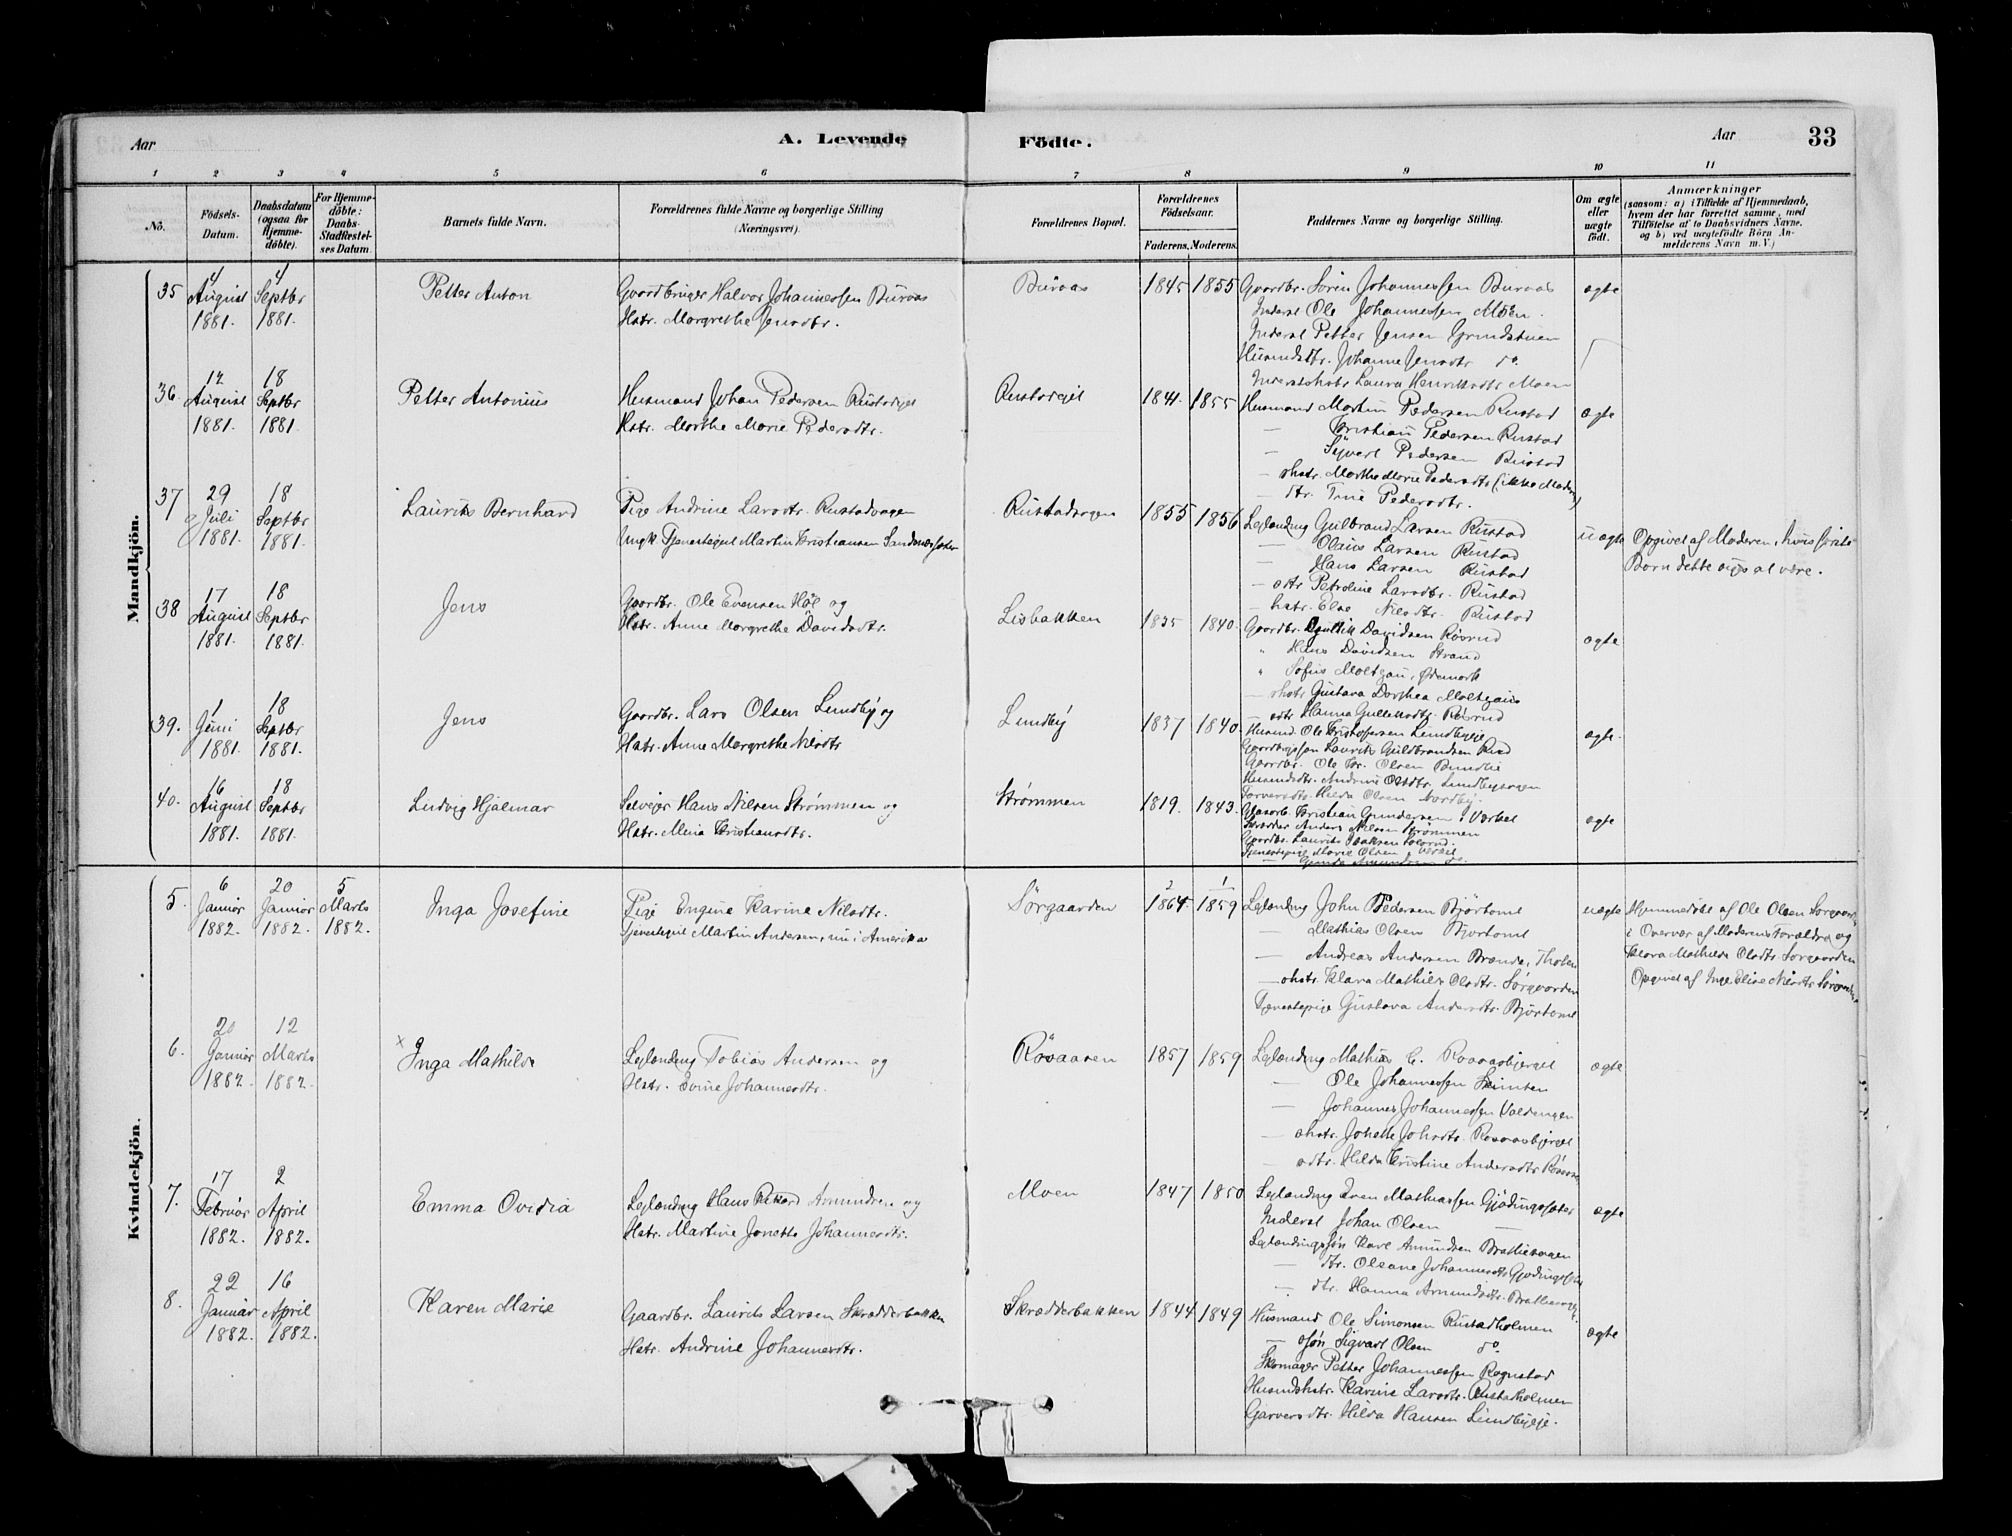 Aar
A. Levende
Födte.
Aar
33
1 2 3 4 5 6 7 8 9 10 11
Nö.
Födsels-Datum.
Daabsdatum (ogsaa for Hjemme-döbte).
For Hjemme-döbte: Daabs-Stadfæstel-ses Datum.
Barnets fulde Navn.
Forældrenes fulde Navne og borgerlige Stilling (Næringsvei).
Forældrenes Bopæl.
Forældrenes Födselsaar.
Faderens. Moderens.
Faddernes Navne og borgerlige Stilling.
Om ægte eller uægte födt.
Anmærkninger
(saasom: a) i Tilfælde af Hjemmedaab, hvem der har forrettet samme, med Tilföielse af to Daabsvidners Navne. og b) ved uægtefödte Börn An-melderens Navn m. V.)
Mandkjön.
35 4 August 1881. 4 Septbr 1881. Petter Anton
Gaardbruger Halvor Johannessen Buraas
Hstr. Margrethe Jensdtr.
Buraas 1845 1855
Gaardbr. Sören Johannessen Buraas
Inderst Ole Johannessen Moen.
Inderst Petter Jensen Grindstuen
Husmdsdtr. Johanne Jensdtr do
Inderstshstr Laura Henriksdtr Moen
ægte
36. 12 August 1881. 18 Septbr 1881. Petter Antonius
Husmand Johan Pedersen Rustadejet
Hstr. Marthe Marie Pedersdtr.
Rustadejet 1841. 1855
Husmand Martin Pedersen Rustad
— Kristian Pedersen Rustad
— Syvert Pedersen Rustad
— shstr. Marthe Marie Pedersdtr (ikke Moderen)
— dtr. Trine Pedersdtr.
ægte
37 29 Juli 1881. 18 Septbr 1881. Laurits Bernhard
Pige Andrine Larsdtr. Rustadvagen
Ungk. Tjenestegut Martin Kristiansen Sandnessæter
Rustadvagen 1855 1856
Leilænding Gulbrand Larsen Rustad
— Olaus Larsen Rustad
— Hans Larsen Rustad
— sdtr Petroline Larsdtr. Rustad
— hstr. Else Nilsdtr. Rustad
uægte
Opgivet af Moderen, hvis förste
Barn dette siges at være.
38 17 August 1881. 18 Septbr 1881. Jens
Gaardbr. Ole Evensen Höl og
Hstr. Anne Margrethe Davidsdtr.
Lisbakken 1835 1840.
Gaardbr. Gullik Davidsen Rösrud
" Hans Davidsen Strand
" Sofus Moltzau, Ødemark
— shstr Gustava Dorthea Moltzaus
— sdtr Hanna Gulliksdtr. Rösrud
ægte
39. 1 Juni 1881. 18 Septbr 1881. Jens
Gaardbr. Lars Olsen Lundby og
Hstr. Anne Margrethe Nilsdtr
Lundby 1837 1840.
Husmd. Ole Kristoffersen Lundbyeje
Gaardbrgssøn Laurits Guldbrandsen Rud
Gaardbr. Ole Olsen Bundlie
Husmdsdtr. Andrine Olsdtr. Lundbyvagen
Garversdtr. Hilda Olsen Nordby.
ægte.
40. 16 August 1881. 18 Septbr 1881. Ludvig Hjalmar
Selvejer Hans Nilsen Strømmen og
Hstr. Mina Kristiansdtr.
Strømmen 1819. 1843.
Kristian Gundersen, Værket
Skrædder Anders Nilsen Strömmen
Gaardbr. Laurits Isaksen
Tjenestepige Marie Olsen, Verket
ægte
Kvindekjön.
5. 6 Januar 1882. 20 Januar 1882. 5 Marts 1882. Inga Josefine
Pige Ingine Karine Nilsdtr.
Tjenestegut Martin Andersen, nu i Amerika
Sørgaarden 1864. 1859
Leilænding John Pedersen Bjørtomt
— Mathias Olsen Bjortomt
— Andreas Andersen Brænde, Tholen
— shstr. Klara Mathilde Olsdtr. Sørgaarden
Tjenestepige Gustava Andersdtr. Bjørtomt
uægte
Hjemmedøbt af Ole Olsen Sørgaarden
i Overvær af Moderens Forældre og
Klara Mathilde Olsdtr Sørgaarden
Opgivet af Inge Elise Nilsdtr Sørgaarden
6. 20 Januar 1882. 12 Marts 1882. Inga Mathilde
Leilænding Tobias Andersen og
Hstr. Johannesdtr.
Rösaasen 1857 1859
Leilænding Mathias C. Rosaasbjerget
— Ole Johannessen Skinten
— Johannes Johannessen Valdengen
— shstr. Johette Johsdtr. Rosaasbjerget
— sdtr. Hilda Kristine Andersdtr Rösaasen
ægte
7. 17 Februar 1882. 2 April 1882. Emma Ovidia
Leilænding Hans Rikard Amundsen og
Hstr. Martine Janette Johannesdtr.
Moen 1847 1850
Leilænding Even Mathiassen Gjødingssæter
Inderst Johan Olsen —
Leilændingssøn Karl Amundsen Bratlievagen
— dtr. Olsane Johannesdtr Gjødingssæter
— dtr. Hanna Amundsdtr. Bratlievagen
ægte
8. 22 Januar 1882. 16 April 1882. Karen Marie
Gaardbr. Laurits Larsen Skrædderbakken
Hstr. Andrine Johannesdtr.
Skrædderbakken 1844 1849
Husmand Ole Simonsen Rustadholmen
— ssøn Sigvart Olsen do
Skomager Petter Johannessen Rognstad
Husmdshstr. Karine Larsdtr. Rustadholmen
Garversdtr. Hilda Hansen Lundbyeje.
ægte